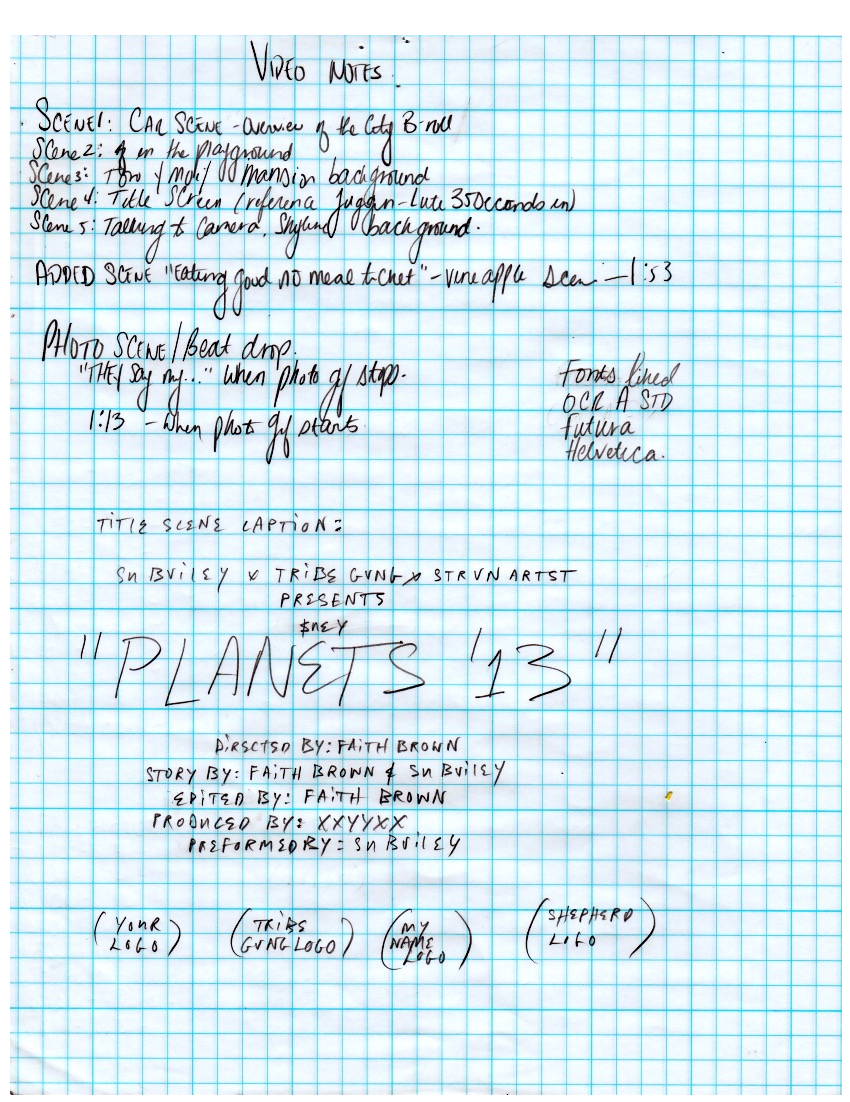 VIDEO NOTES
SCENE 1: CAR SCENE - Overview of the City B-roll
Scene 2: in the playground
Scene 3: mansion background
Scene 4: Title Screen (reference Juggin - Lute 35 seconds in)
Scene 5: Talking to Camera, Skyline background.
ADDED SCENE "Eating good no meal ticket" - vineapple scene - 1:53
PHOTO SCENE / Beat drop.
"THEY say my..." when photo gif stops.
1:13 - when phot gif starts
Fonts liked
OCR A STD
Futura
Helvetica.
TITLE SCENE CAPTION:
Su BVILEY x TRIBE GVNG x STRVN ARTST
PRESENTS
$NEY
"PLANETS '13"
DIRECTED BY: FAITH BROWN
STORY BY: FAITH BROWN & Su BVILEY
EDITED BY: FAITH BROWN
PRODUCED BY: XXYYXX
PREFORMED BY: Su BVILEY
(YOUR LOGO)
(TRIBE GVNG LOGO)
(MY NAME LOGO)
(SHEPHERD LOGO)